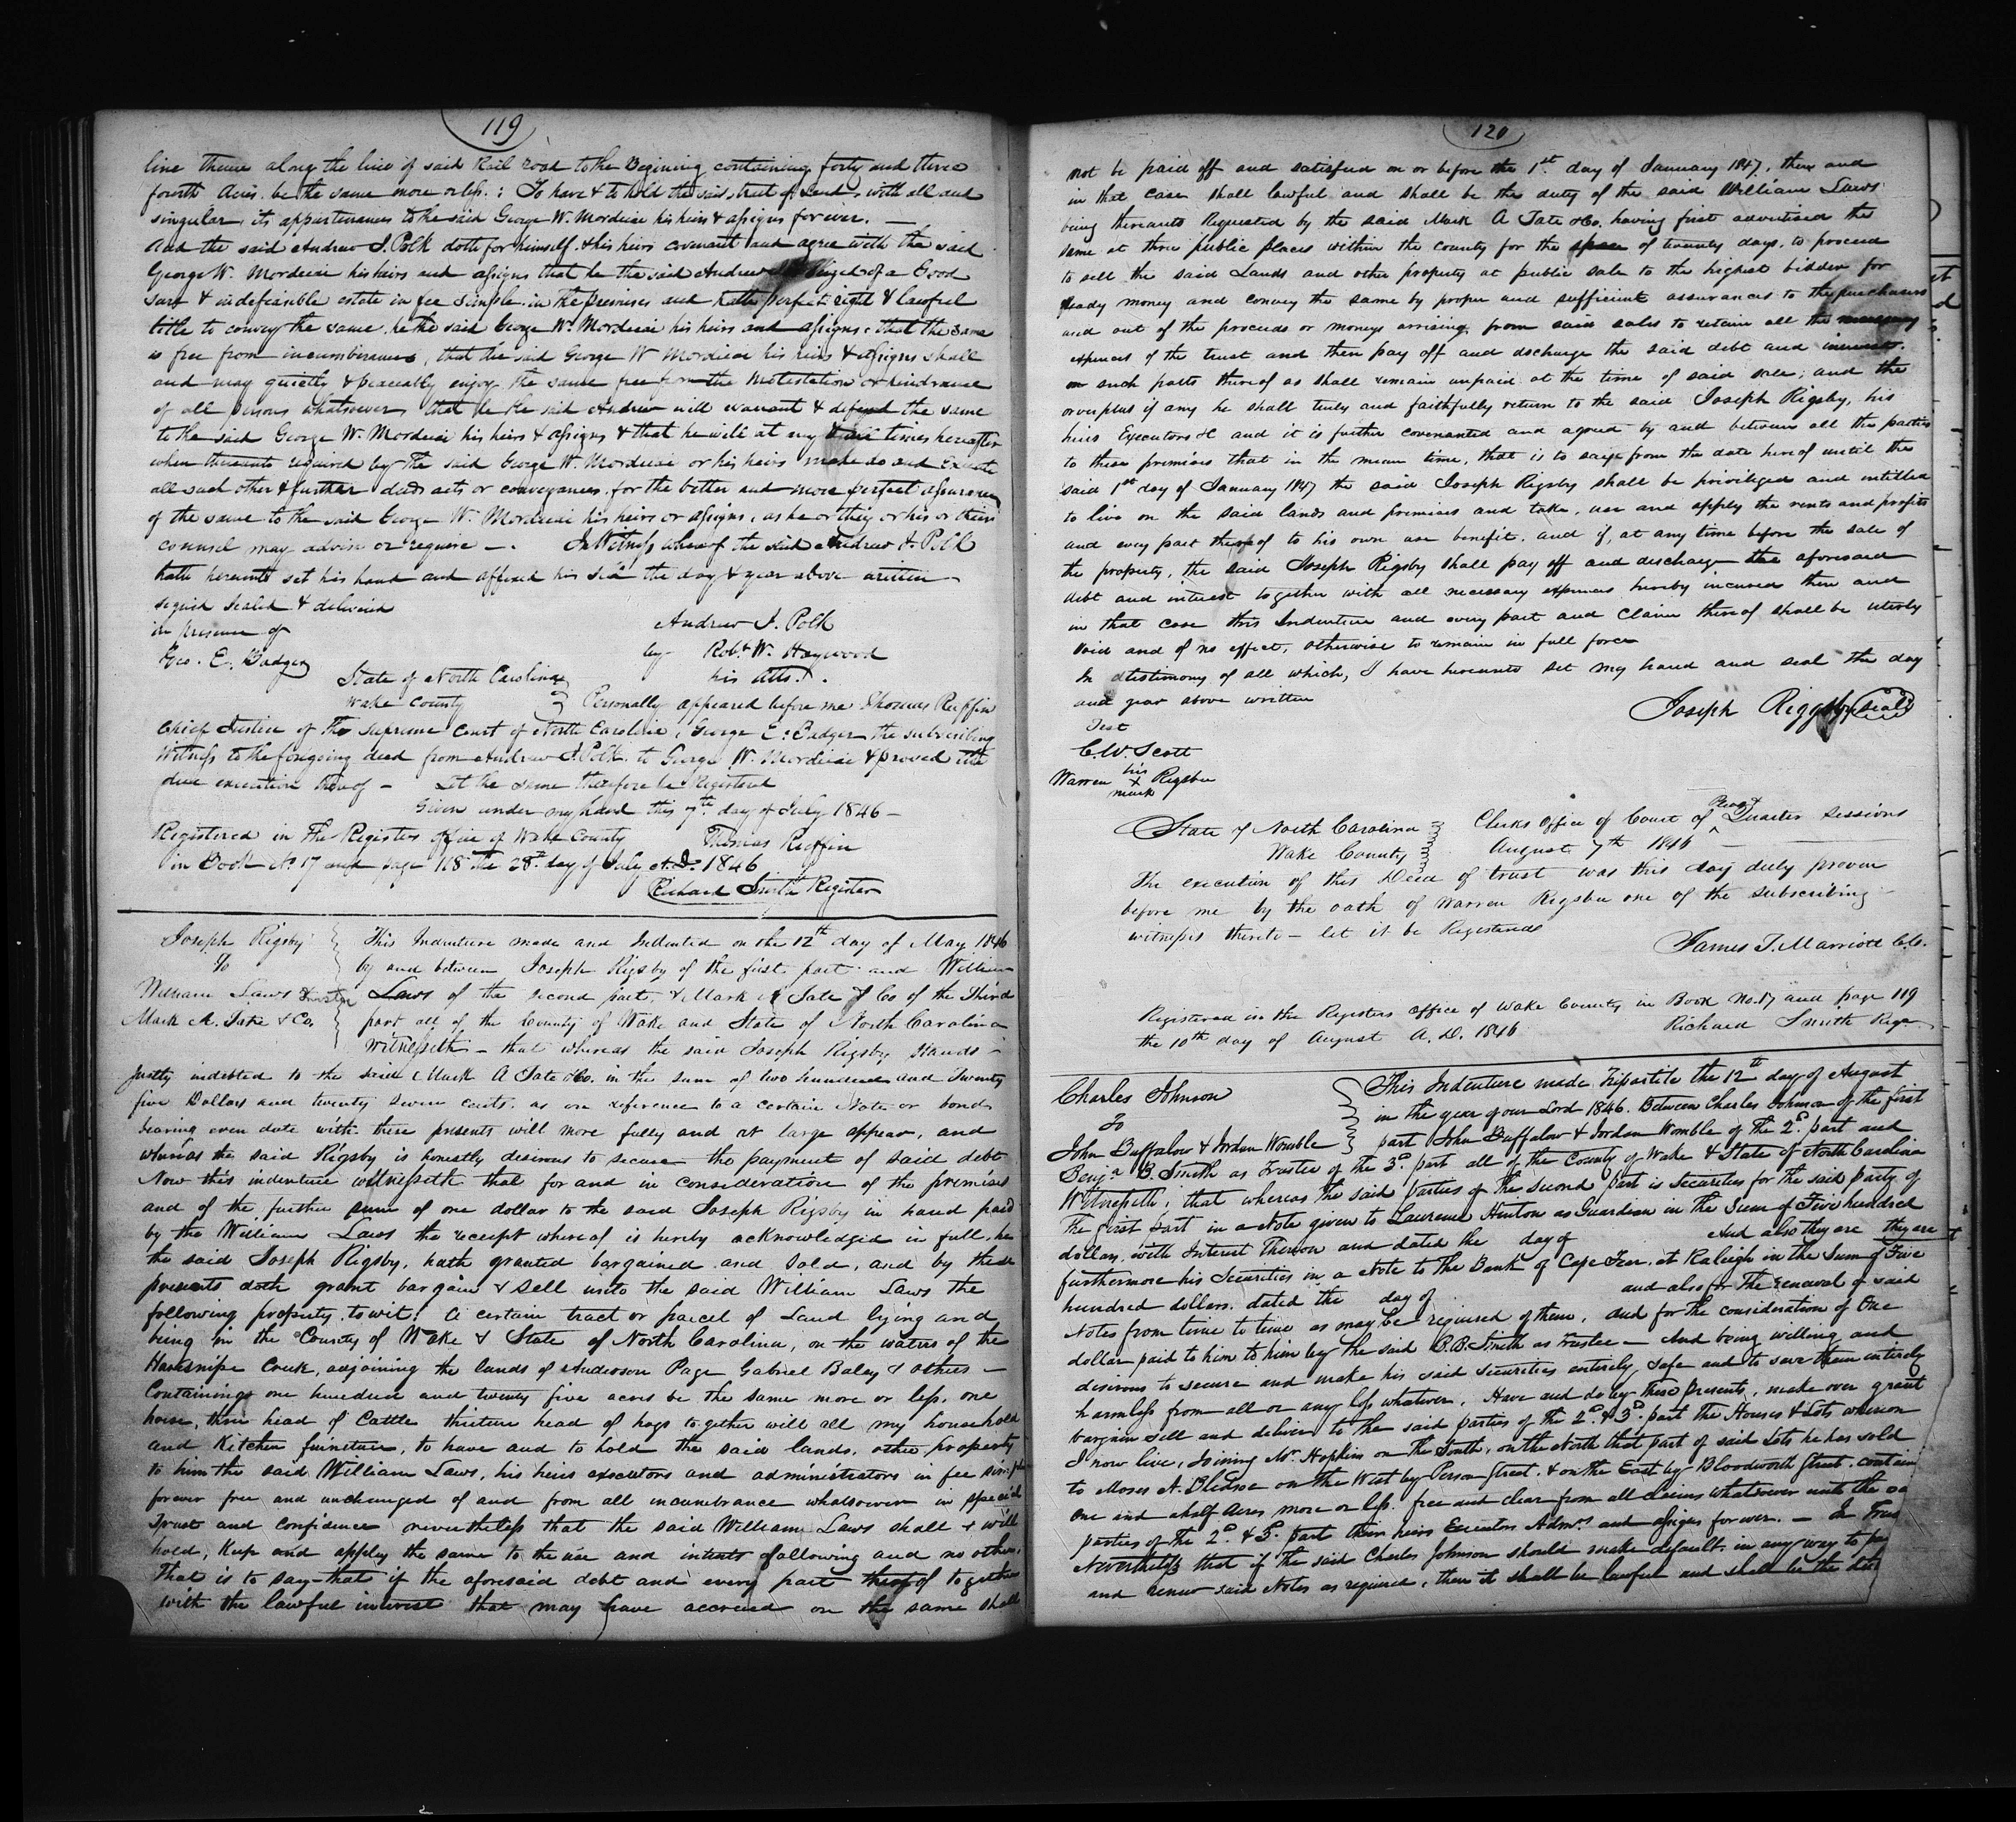 119
line thence along the line of said Rail road to the Begining containing forty and three
fourth Acres be the same more or less. : To have & to hold the said tract of Land with all and
singular its appurtenances to the said George W. Mordecai his heirs & assigns for ever. —
And the said Andrew J. Polk doth for himself & his heirs covenant and agree with the said
George W. Mordecai his heirs and assigns that he the said Andrew is seized of a Good
sure & indefeasible estate in fee simple in the premises and hath perfect right & lawful
title to convey the same he the said George W. Mordecai his heirs and assigns, that the same
is free from incumberances, that the said George W Mordecai his heirs & assigns shall
and may quietly & peaceably enjoy the same free from the molestation or hindrance
of all persons whatsoever that he the said Andrew will warrant & defend the same
to the said George W. Mordecai his heirs & assigns & that he will at any time times hereafter
when thereunto required by the said George W. Mordecai or his heirs make do and Execute
all such other & further deeds acts or conveyances for the better and more perfect assurance
of the same to the said George W. Mordecai his heirs or assigns, as he or they or his or their
counsel may advise or require —. In Witness whereof the said Andrew J. Polk
hath hereunto set his hand and affixed his seal the day & year above written —
signed sealed & delivered
in presence of
Geo. E. Badger
Andrew J. Polk
by Robt W. Haywood
his atto.
State of North Carolina
Wake County
Personally appeared before me Thomas Ruffin
Chief Justice of the Supreme Court of North Carolina, George E. Badger the subscribing
Witness to the foregoing deed from Andrew J. Polk to George W. Mordecai & proved the
due execution thereof — Let the same therefore be Registered
Given under my hand this 7th day of July 1846 —
Thomas Ruffin
Registered in the Registers office of Wake County
in Book No 17 and page 118 the 28th day of July A.D. 1846
Richard Smith Register
Joseph Rigsby
To
William Laws Trustee
Mark A. Tate & Co.
This Indenture made and Indented on the 12th day of May 1846
by and between Joseph Rigsby of the first part and William
Laws of the second part, & Mark A Tate & Co of the Third
part all of the County of Wake and State of North Carolina
Witnesseth — that whereas the said Joseph Rigsby stands
justly indebted to the said Mark A Tate & Co. in the sum of two hundred and twenty
five Dollars and twenty seven cents. as on reference to a certain Note or bond
bearing even date with these presents will more fully and at large appear, and
whereas the said Rigsby is honestly desirous to secure the payment of said debt
Now this indenture witnesseth that for and in consideration of the premises
and of the further sum of one dollar to the said Joseph Rigsby in hand paid
by the William Laws the receipt whereof is hereby acknowledged in full, he
the said Joseph Rigsby, hath granted bargained and sold, and by these
presents doth grant bargain & sell unto the said William Laws the
following property, to wit: A certain tract or parcel of Land lying and
being in the County of Wake & State of North Carolina, on the waters of the
Haresnipe Creek, adjoining the lands of Anderson Page Gabriel Baley & others —
Containing one hundred and twenty five acres be the same more or less, one
horse, three head of Cattle thirteen head of hogs together will all my household
and Kitchen furniture, to have and to hold the said lands, other property
to him the said William Laws, his heirs executors and administrators in fee simple
forever free and unchanged of and from all incumbrance whatsoever in special
Trust and confidence nevertheless that the said William Laws shall & will
hold, Keep and apply the same to the use and intents following and no other.
That is to say that if the aforesaid debt and every part thereof together
with the lawful interest that may have accrued on the same shall
120
not be paid off and satisfied on or before the 1st day of January 1847, then and
in that case shall lawful and shall be the duty of the said William Laws
being thereunto Requested by the said Mark A Tate & Co. having first advertised the
same at three public places within the county for the space of twenty days, to proceed
to sell the said Lands and other property at public sale to the highest bidder for
ready money and convey the same by proper and sufficient assurances to the purchasers
and out of the proceeds or moneys arising from said sales to retain all the necessary
expences of the trust and then pay off and dscharge the said debt and interest.
or such parts thereof as shall remain unpaid at the time of said sale, and the
overplus if any he shall truly and faithfully return to the said Joseph Rigsby, his
heirs Executors &c and it is further covenanted and agreed by and between all the parties
to these premises that in the mean time, that is to saye from the date hereof until the
said 1st day of January 1847 the said Joseph Rigsby shall be priviliged and intitled
to live on the said lands and premises and take, use and apply the rents and profits
and every part thereof to his own use benefit. and if, at any time before the sale of
the property, the said Joseph Rigsby shall pay off and discharge the aforesaid
debt and interest together with all necessary expenses hereby incurred then and
in that case this Indenture and every part and Claim thereof shall be uterly
void and of no effect, otherwise to remain in full force
In testimony of all which, I have hereunto set my hand and seal the day
and year above written
Joseph Riggsby (seal)
Test
C. W. Scott
Warren his x mark Rigsbee
State of North Carolina
Wake County
Clerks Office of Court of Pleas & Quarter Sessions
August 7th 1846 —
The execution of this Deed of trust was this day duly proven
before me by the oath of Warren Rigsbee one of the subscribing
witnesses thereto — let it be Registered
James T. Marriott C.C.
Registered in the Registers office of Wake County in Book No. 17 and page 119
the 10th day of August A. D. 1846
Richard Smith Regr
Charles Johnson
To
John Buffalow & Jordan Womble
This Indenture made Tripartite the 12th day of August
in the year of our Lord 1846. Between Charles Johnson of the first
part John Buffalow & Jordan Womble of the 2d. part and
Benja B. Smith as Trustee of the 3d. part all of the County of Wake & State of North Carolina
Witnesseth, that whereas the said parties of the second part is securities for the said party of
the first part in a Note given to Laurence Hinton as Guardian in the Sum of Five hundred
dollars, with Interest Thereon and dated the day of And also they are they are
furthermore his Securities in a Note to the Bank of Cape Fear at Raleigh in the Sum of Five
hundred dollars. dated the day of and also for the renewal of said
Notes from time to time as may be required of them, and for the consideration of One
dollar paid to him to him by the said B. B. Smith as Trustee — And being willing and
desirous to secure and make his said securities entirely safe and to save them entirely
harmless from all or any loss whatever, Have and do by These presents, make over grant
bargain sell and deliver to the said parties of the 2d. & 3d. part The Houses & Lots whereon
I now live, Joining Mr. Hopkins on the South, on the North that part of said Lots he has sold
to Moses A. Bledsoe on the West by Person Street. & on the East by Bloodworth Street. contain
one and a half Acres more or less. free and clear from all claims whatsoever unto the sa
parties of the 2d. & 3d. part their heirs Executors Admrs and assigns forever. — In Trus
Nevertheless that if the said Charles Johnson should make default in any way to pa
and renew said Notes as required, then it shall be lawful and shall be the dut